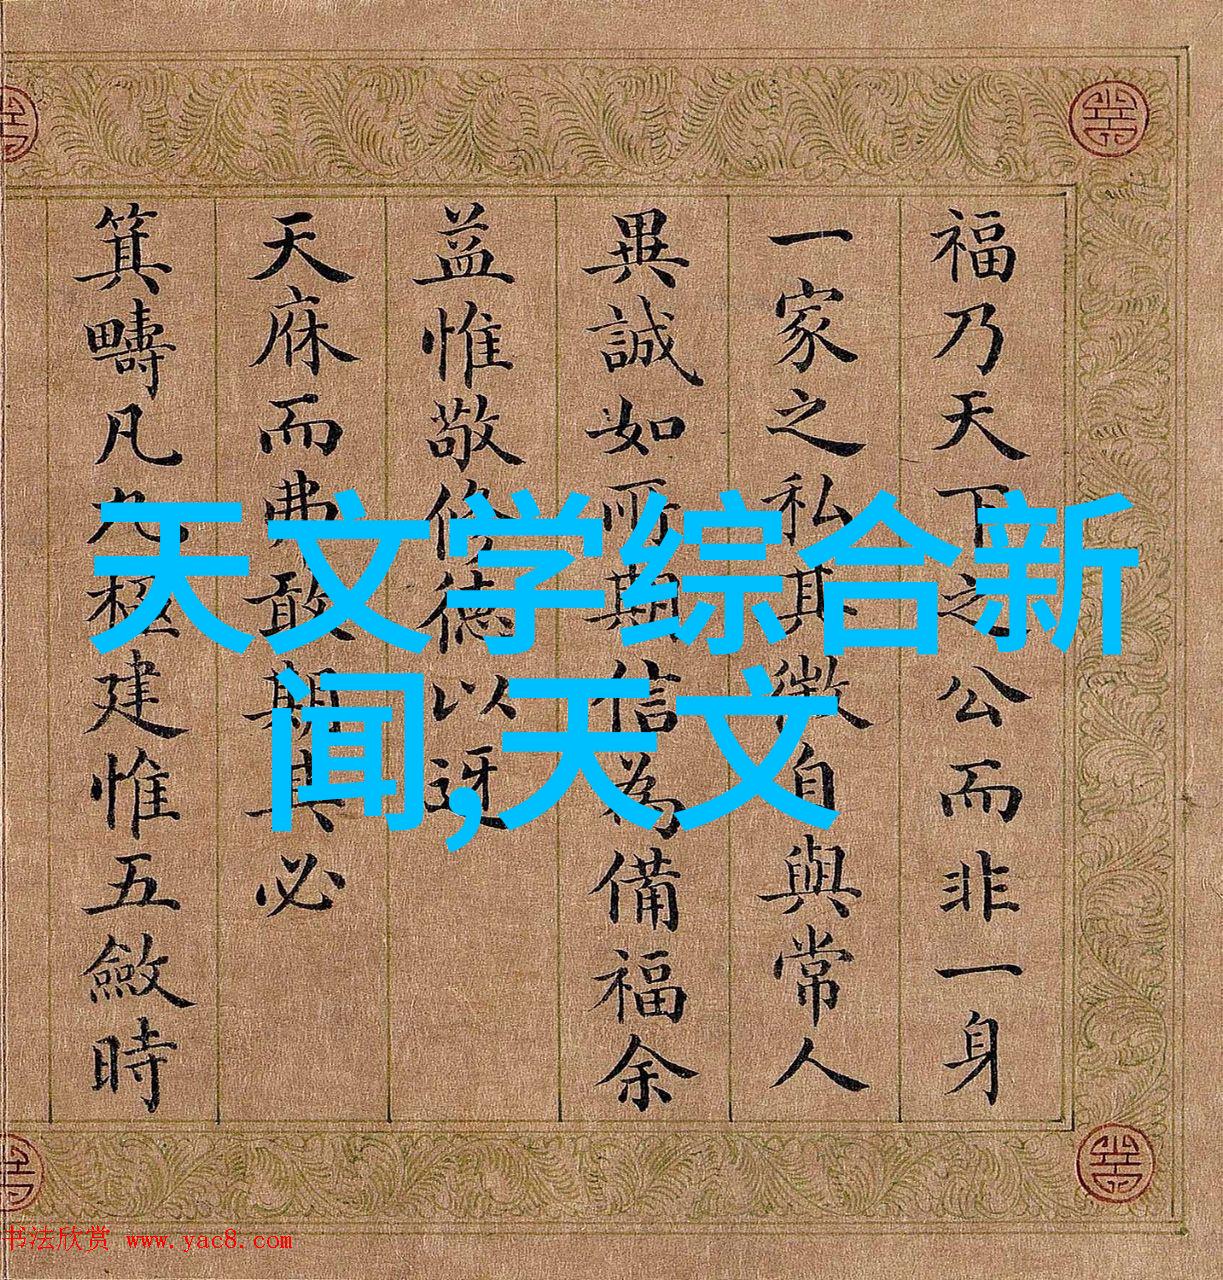 福乃天下之公而非一身
一家之私其徵自與常人
異誠如所期信為備福余
益惟敬修德以迓
天庥而弗敢期其必
箕疇凡九極建惟五斂時
天文学综合新
闻,天文
书法欣赏 www.yac8.com